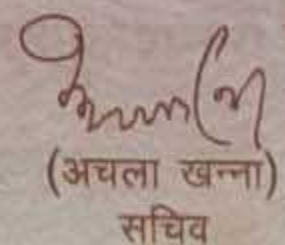 (अचला खन्ना)
सचिव